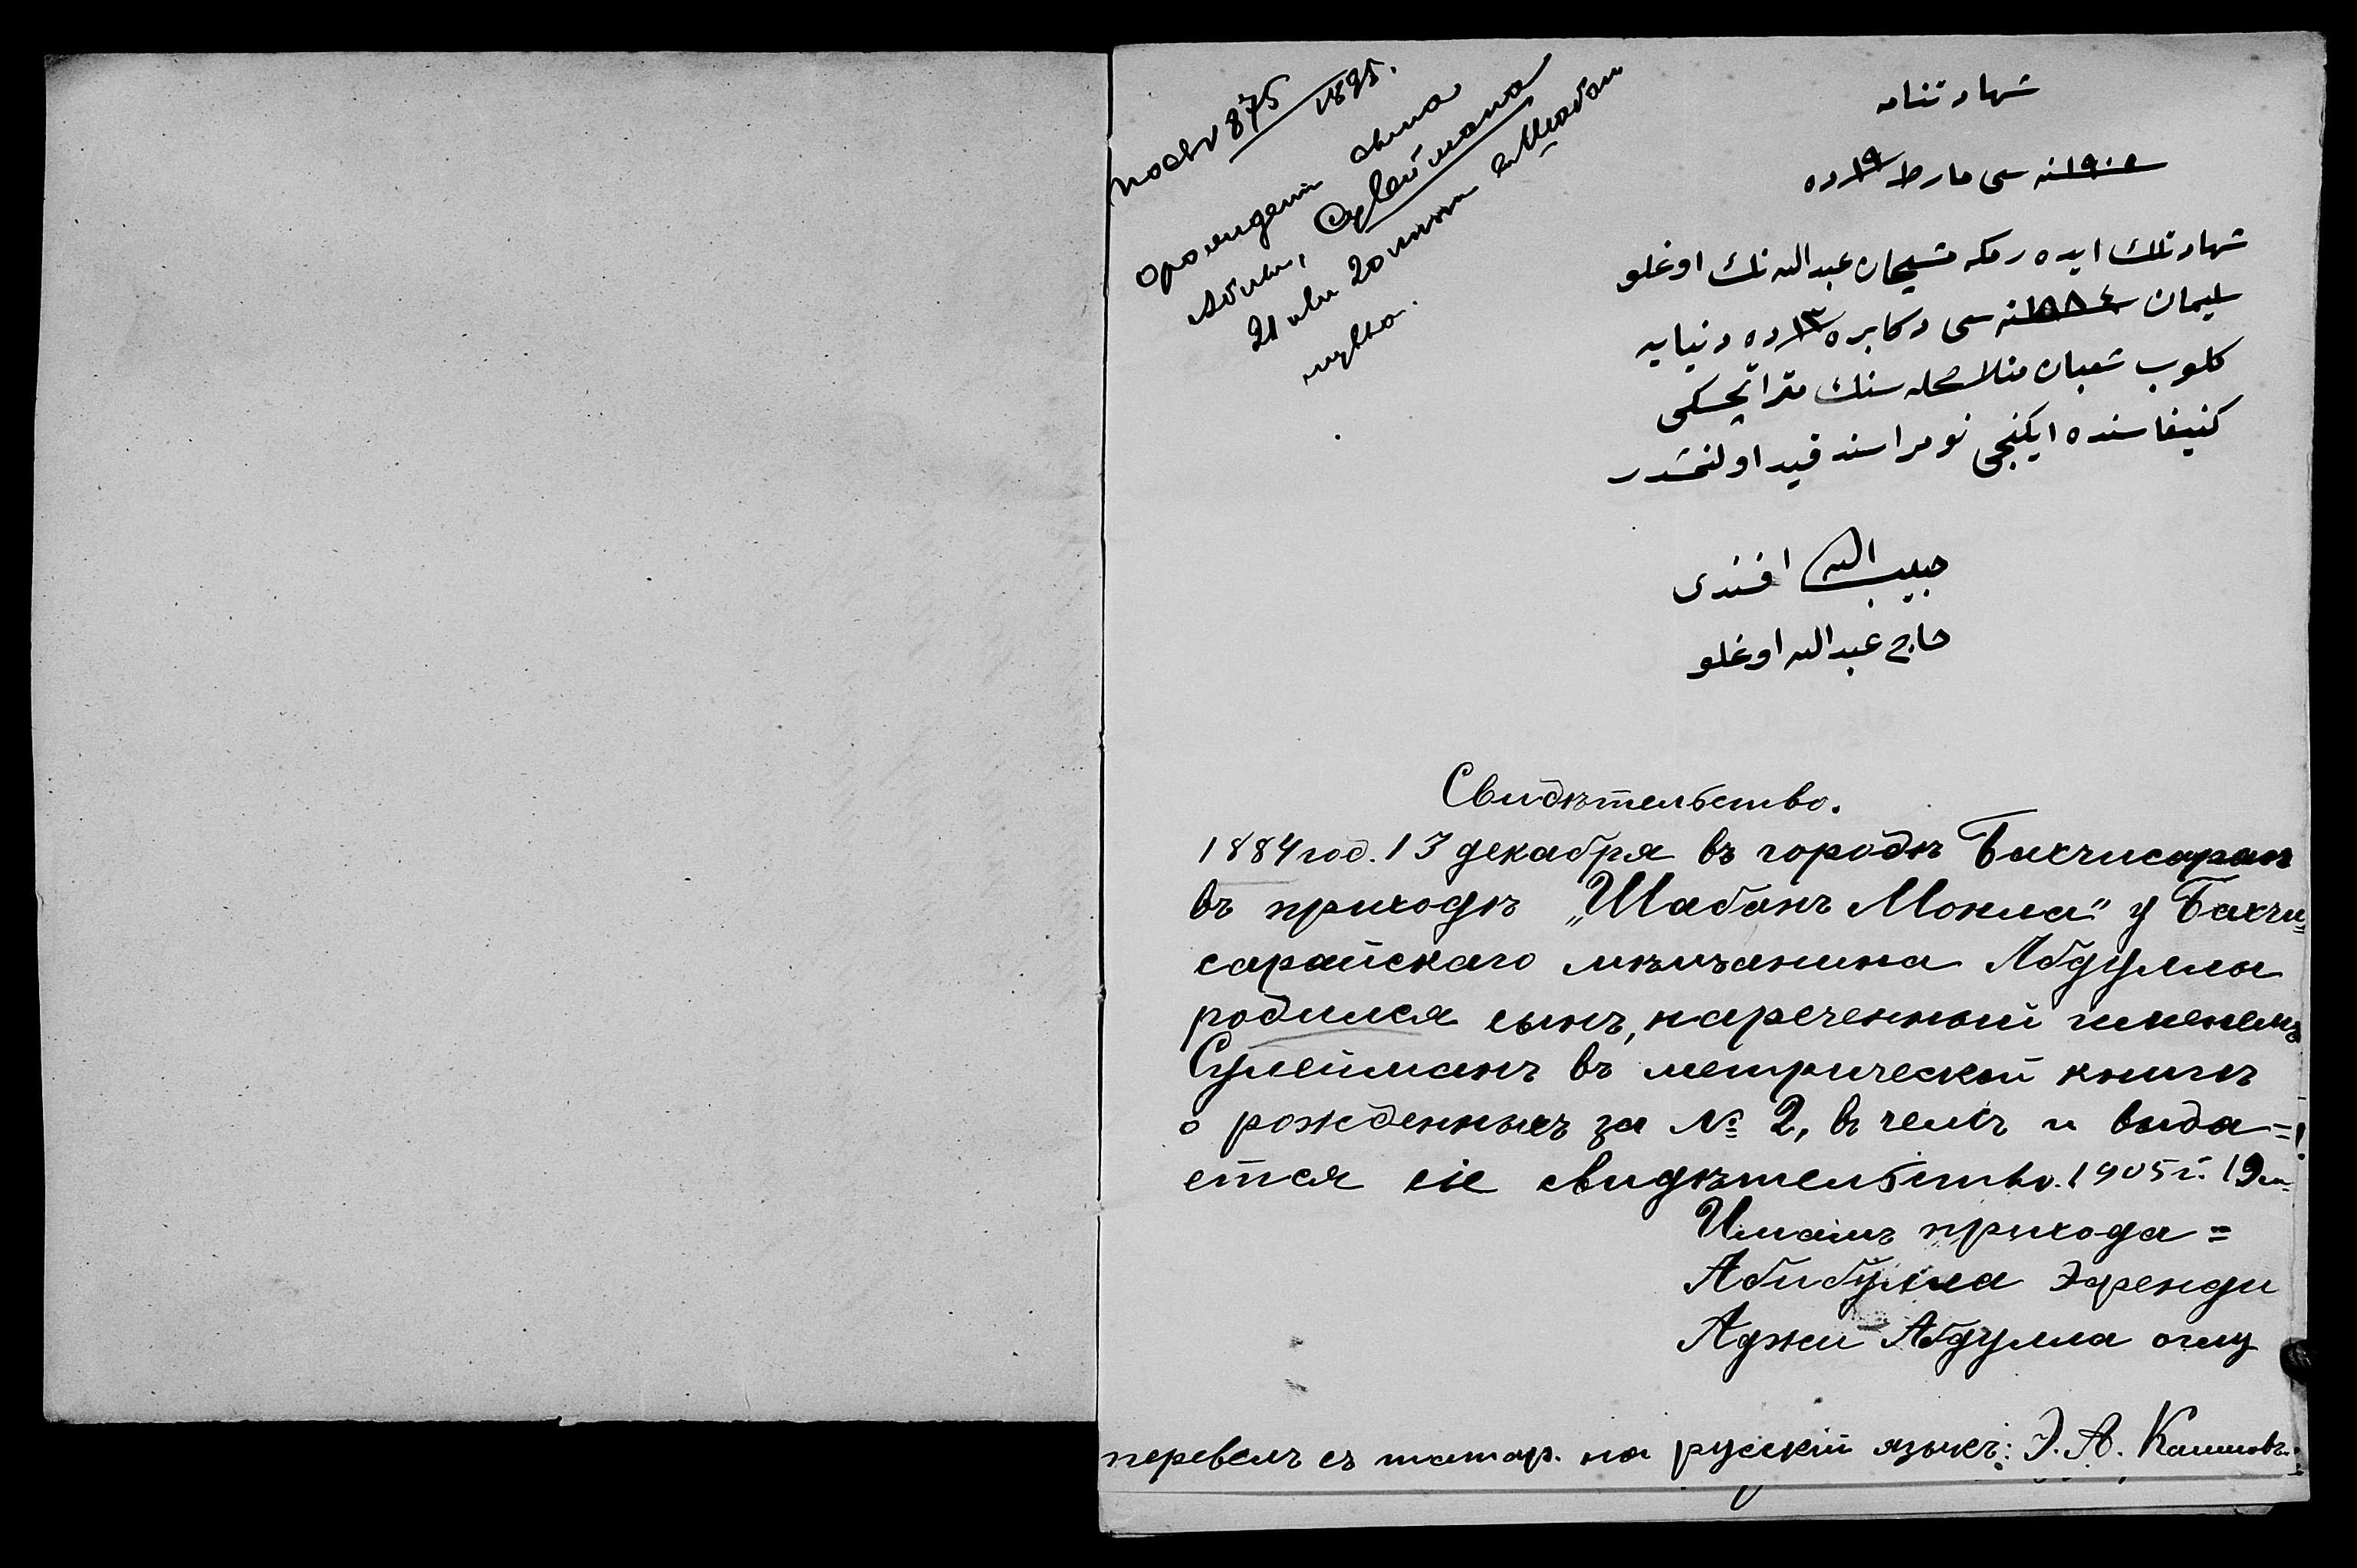 875 1895.
Сулеймана
شهادتنامه
١٩٠٥نه سی مارط ١٩ده
شهادتلك ايده رمكه عبدالله نك اوغلو
سليمان ١٨٨٤نه سی دكابره ١٣ده دنيايه
كلوب شعبان منلا محله سنك متراچسكی
كنيغا سنده ايكنجی نومراسند قيد اولنمشدر
حبيب الله افندی
حاجی عبدالله اوغلو
Свидѣтельство.
1884 год. 13 декабря въ городѣ Бахчисараѣ
въ приходѣ „Шабанъ Мокла" у Бахчи=
сарайскаго мѣщанина Абдуллы
родился сынъ, нареченный именемъ
Сулейманъ въ метрической книгѣ
о рожденныхъ за № 2, въ чемъ и выда=
ется сіе свидѣтельство. 1905 г. 19 м.
Имамъ прихода =
Абибулла Эфенди
Аджи Абдулла оглу
перевелъ съ татар. на русскій языкъ: Э. А.